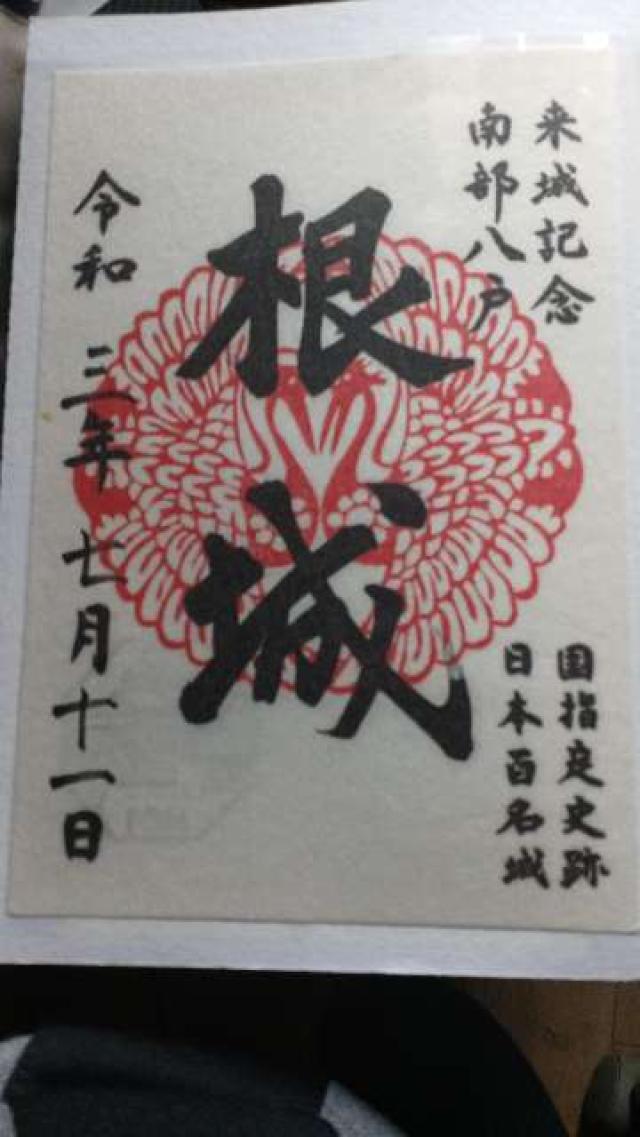 来城記念
南部八戸
根城
国指定史跡
日本百名城
令和三年七月十一日